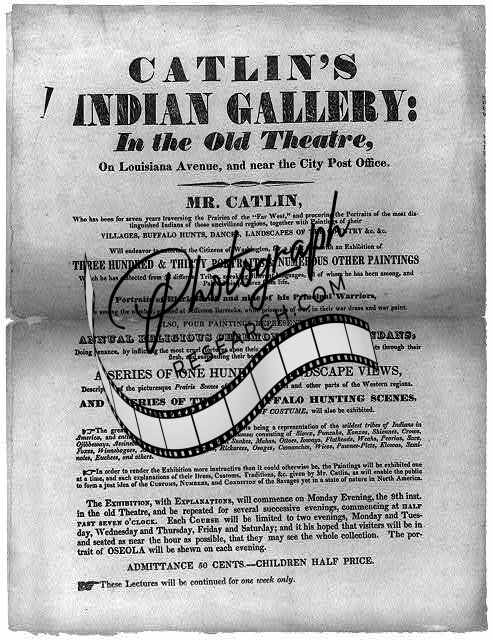 CATLIN'S
INDIAN GALLERY:
In the Old Theatre,
On Louisiana Avenue, and near the City Post Office.
MR. CATLIN,
Who has been for seven years traversing the Prairies of the "Far West," and procuring the Portraits of the most dis-
tinguished Indians of those uncivilized regions, together with Paintings of their
VILLAGES, BUFFALO HUNTS, DANCES, LANDSCAPES OF THE COUNTRY &c. &c.
Will endeavor to entertain the Citizens of Washington, with an Exhibition of
THREE HUNDRED & THIRTY PORTRAITS & NUMEROUS OTHER PAINTINGS
Which he has collected from different Tribes, speaking different languages, of whom he has been among, and
Portraits of Black Hawk and nine of his Principal Warriors,
at Jefferson Barracks, in their war dress and war paint.
ALSO, FOUR PAINTINGS REPRESENTING
ANNUAL RELIGIOUS CEREMONY MANDANS;
Doing penance, by inflicting the most cruel tortures upon their through their
flesh, and suspending their
A SERIES OF ONE HUNDRED LANDSCAPE VIEWS,
Descriptive of the picturesque Prairie Scenes of and other parts of the Western regions.
AND A SERIES OF BUFFALO HUNTING SCENES,
OF COSTUME, will also be exhibited.
The great being a representation of the wildest tribes of Indians in
America, and consisting of Sioux, Puncahs, Konzas, Shiennes, Crows,
Ojibbeways, Snakes, Mahas, Ottoes, Ioways, Flatheads, Weahs, Peorias, Sacs,
Foxes, Winnebagoes, Rickarees, Osages, Camanches, Wicos, Pawnee-Picts, Kiowas, Semi-
noles, Euchees, and others.
In order to render the Exhibition more instructive than it could otherwise be, the Paintings will be exhibited one
at a time, and such explanations of their Dress, Customs, Traditions, &c. given by Mr. Catlin, as will enable the public
to form a just idea of the CUSTOMS, NUMBERS, and CONDITION of the Savages yet in a state of nature in North America.
The EXHIBITION, with EXPLANATIONS, will commence on Monday Evening, the 9th inst.
in the old Theatre, and be repeated for several successive evenings, commencing at HALF
PAST SEVEN O'CLOCK. Each COURSE will be limited to two evenings, Monday and Tues-
day, Wednesday and Thursday, Friday and Saturday; and it his hoped that visiters will be in
and seated as near the hour as possible, that they may see the whole collection. The por-
trait of OSEOLA will be shewn on each evening.
ADMITTANCE 50 CENTS.—CHILDREN HALF PRICE.
These Lectures will be continued for one week only.
Photograph
RESEARCH.COM